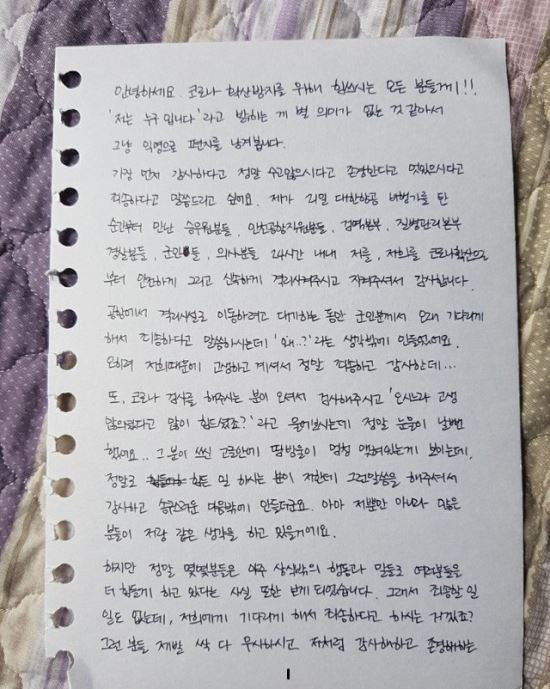 안녕하세요. 코로나 확산방지를 위해 힘쓰시는 모든 분들께!!
'저는 누구입니다' 라고 밝히는 게 별 의미가 없는 것 같아서
그냥 익명으로 편지를 남겨봅니다.
가장 먼저 감사하다고 정말 수고많으시다고 존경한다고 멋있으시다고
죄송하다고 말씀드리고 싶어요. 제가 리밀 대한항공 비행기를 탄
순간부터 만난 승무원분들, 인천공항직원분들, 검역본부, 질병관리본부
경찰분들, 군인들, 의사분들 24시간 내내 저를, 저희를 코로나확산으로
부터 안전하게 그리고 신속하게 격리시켜주시고 지켜주셔서 감사합니다.
공항에서 격리시설로 이동하려고 대기하는 동안 군인분께서 오래 기다리게
해서 죄송하다고 말씀하시는데 '왜..?' 라는 생각밖에 안들었어요.
오히려 저희때문에 고생하고 계셔서 정말 죄송하고 감사한데...
또, 코로나 검사를 해주시는 분이 오셔서 검사해주시고 '오시느라 고생
많으셨다고 많이 힘드셨죠?' 라고 물어보시는데 정말 눈물이 날뻔
했어요.. 그 분이 쓰신 고글안에 땀방울이 엄청 맺혀있는게 보이는데,
정말로 힘든 일 하시는 분이 저한테 그런말씀을 해주셔서
감사하고 송구스러운 마음밖에 안들더군요. 아마 저뿐만 아니라 많은
분들이 저랑 같은 생각을 하고 있을거예요.
하지만 정말 몇몇분들은 아주 상식밖의 행동과 말들로 여러분들을
더 힘들게 하고 있다는 사실 또한 보게 되었습니다. 그래서 죄송할 일
일도 없는데, 저희에게 기다리게 해서 죄송하다고 하시는 거겠죠?
그런 분들 제발 싹 다 무시하시고 저처럼 감사해하고 존경해하는
1